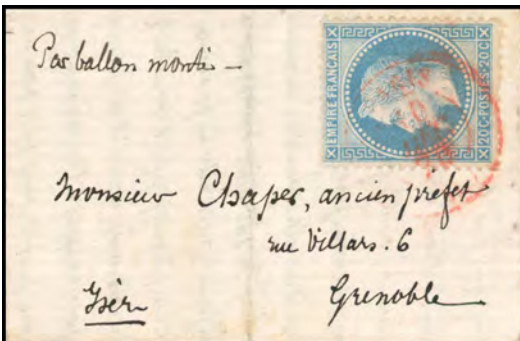 Par ballon monté –
EMPIRE FRANÇAIS
20C·POSTES·20C
Monsieur Chaper, ancien préfet
rue Villars. 6
Grenoble
Isère